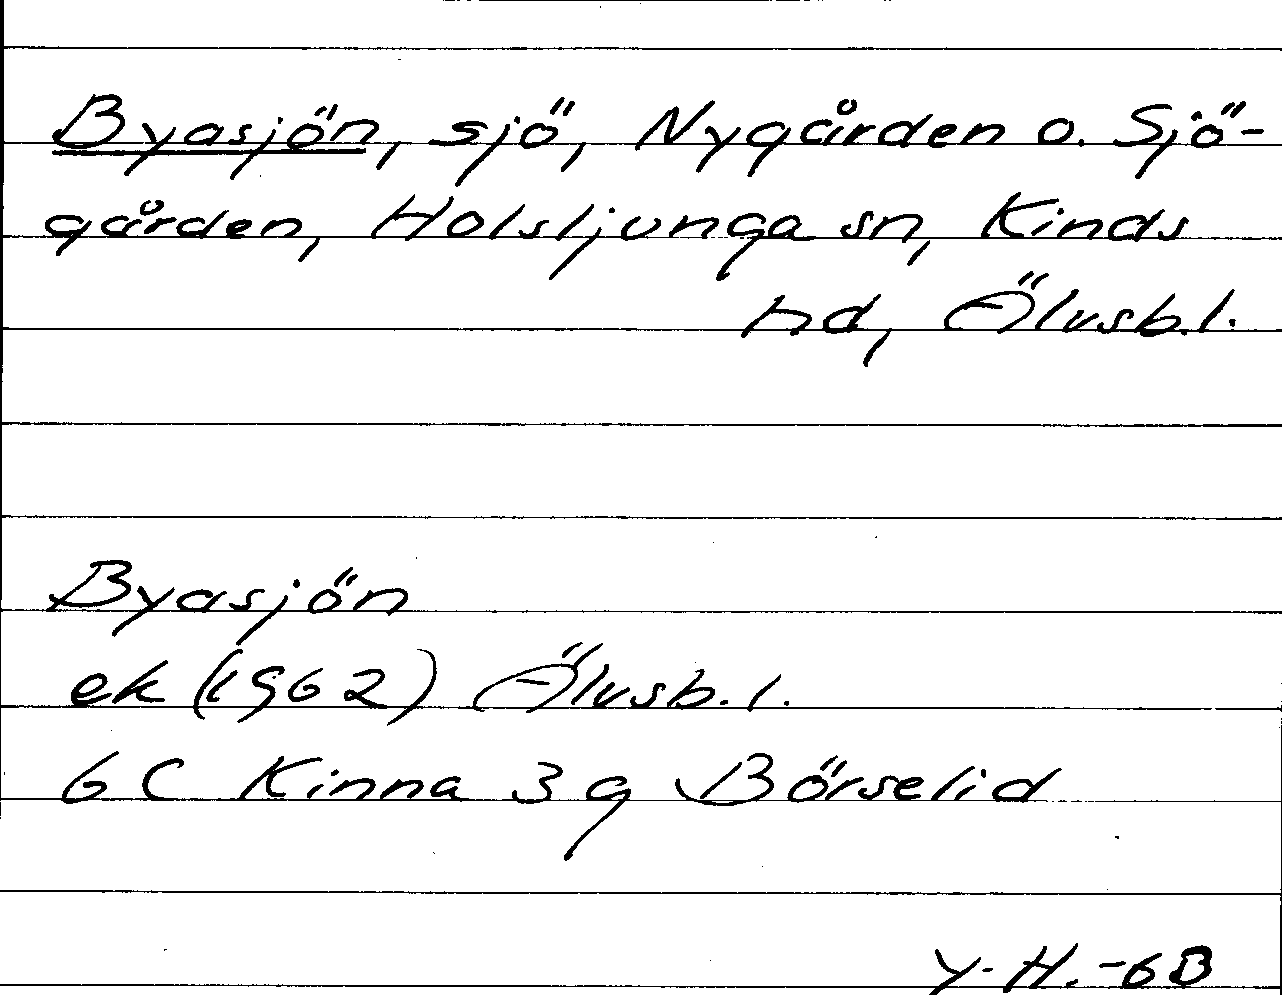 Byasjön, sjö, Nygården o. Sjö-
gården, Holsljunga sn, Kinds
hd, Älvsb.l.
Byasjön
ek (1962) Älvsb.l.
6 C Kinna 3 g Börselid
Y.H.-68